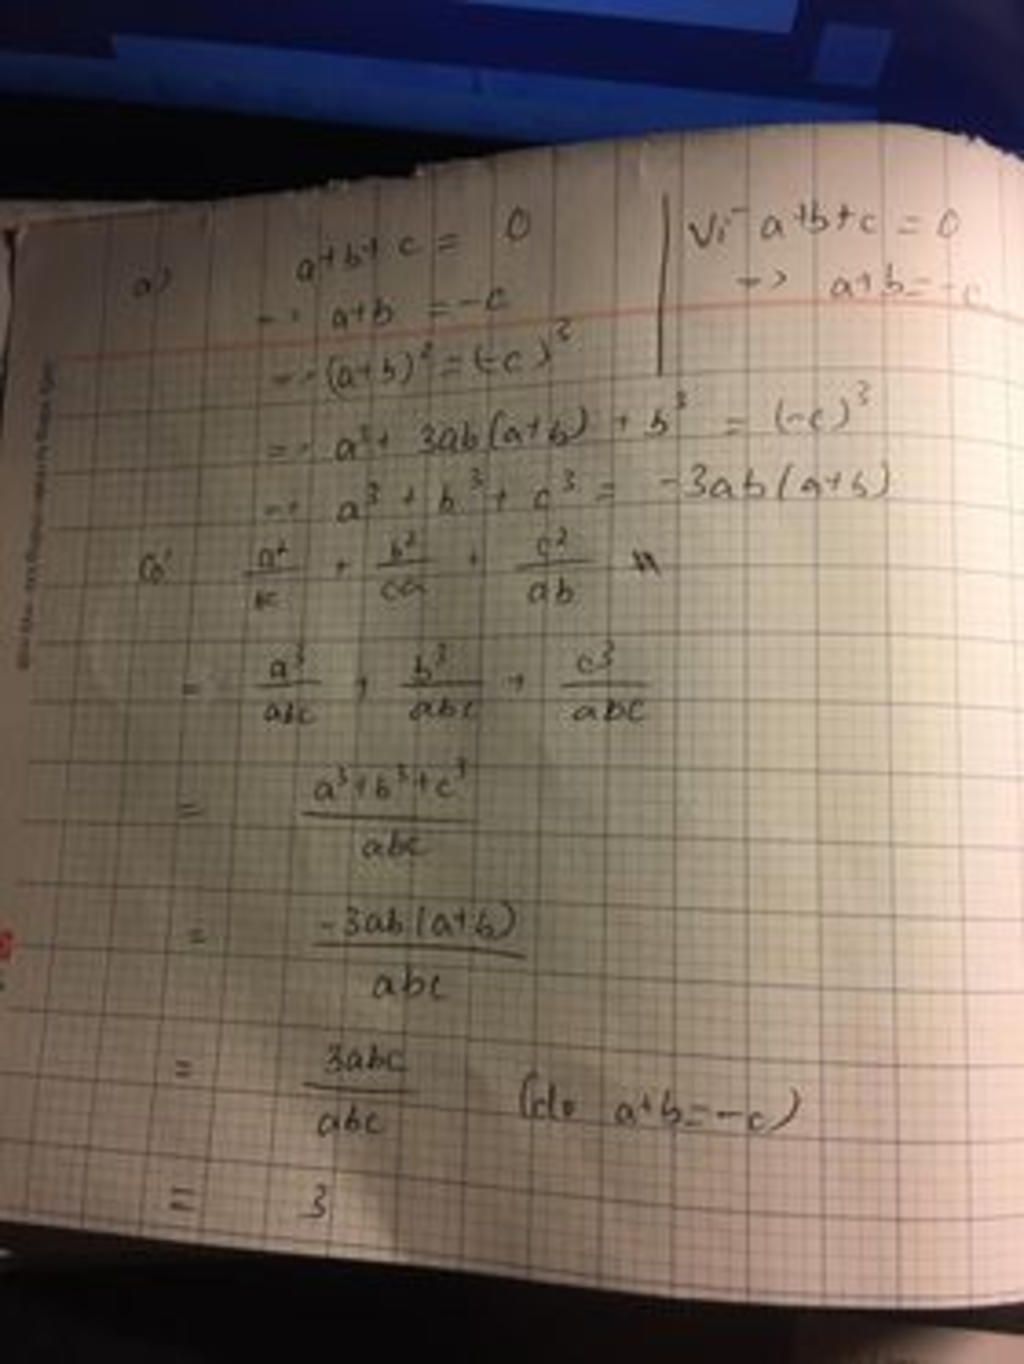 a) a+b+c = 0
=> a+b = -c
=> (a+b)³ = (-c)³
=> a³ + 3ab(a+b) + b³ = (-c)³
=> a³ + b³ + c³ = -3ab(a+b)
Vì a+b+c = 0
=> a+b = -c
Có a²/bc + b²/ca + c²/ab
= a³/abc + b³/abc + c³/abc
= (a³+b³+c³)/abc
= -3ab(a+b)/abc
= 3abc/abc (do a+b=-c)
= 3